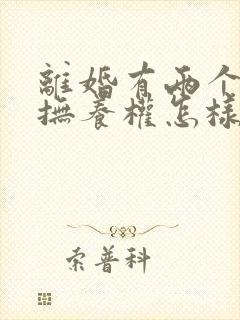 離婚有兩个
撫養權怎樣
索普科